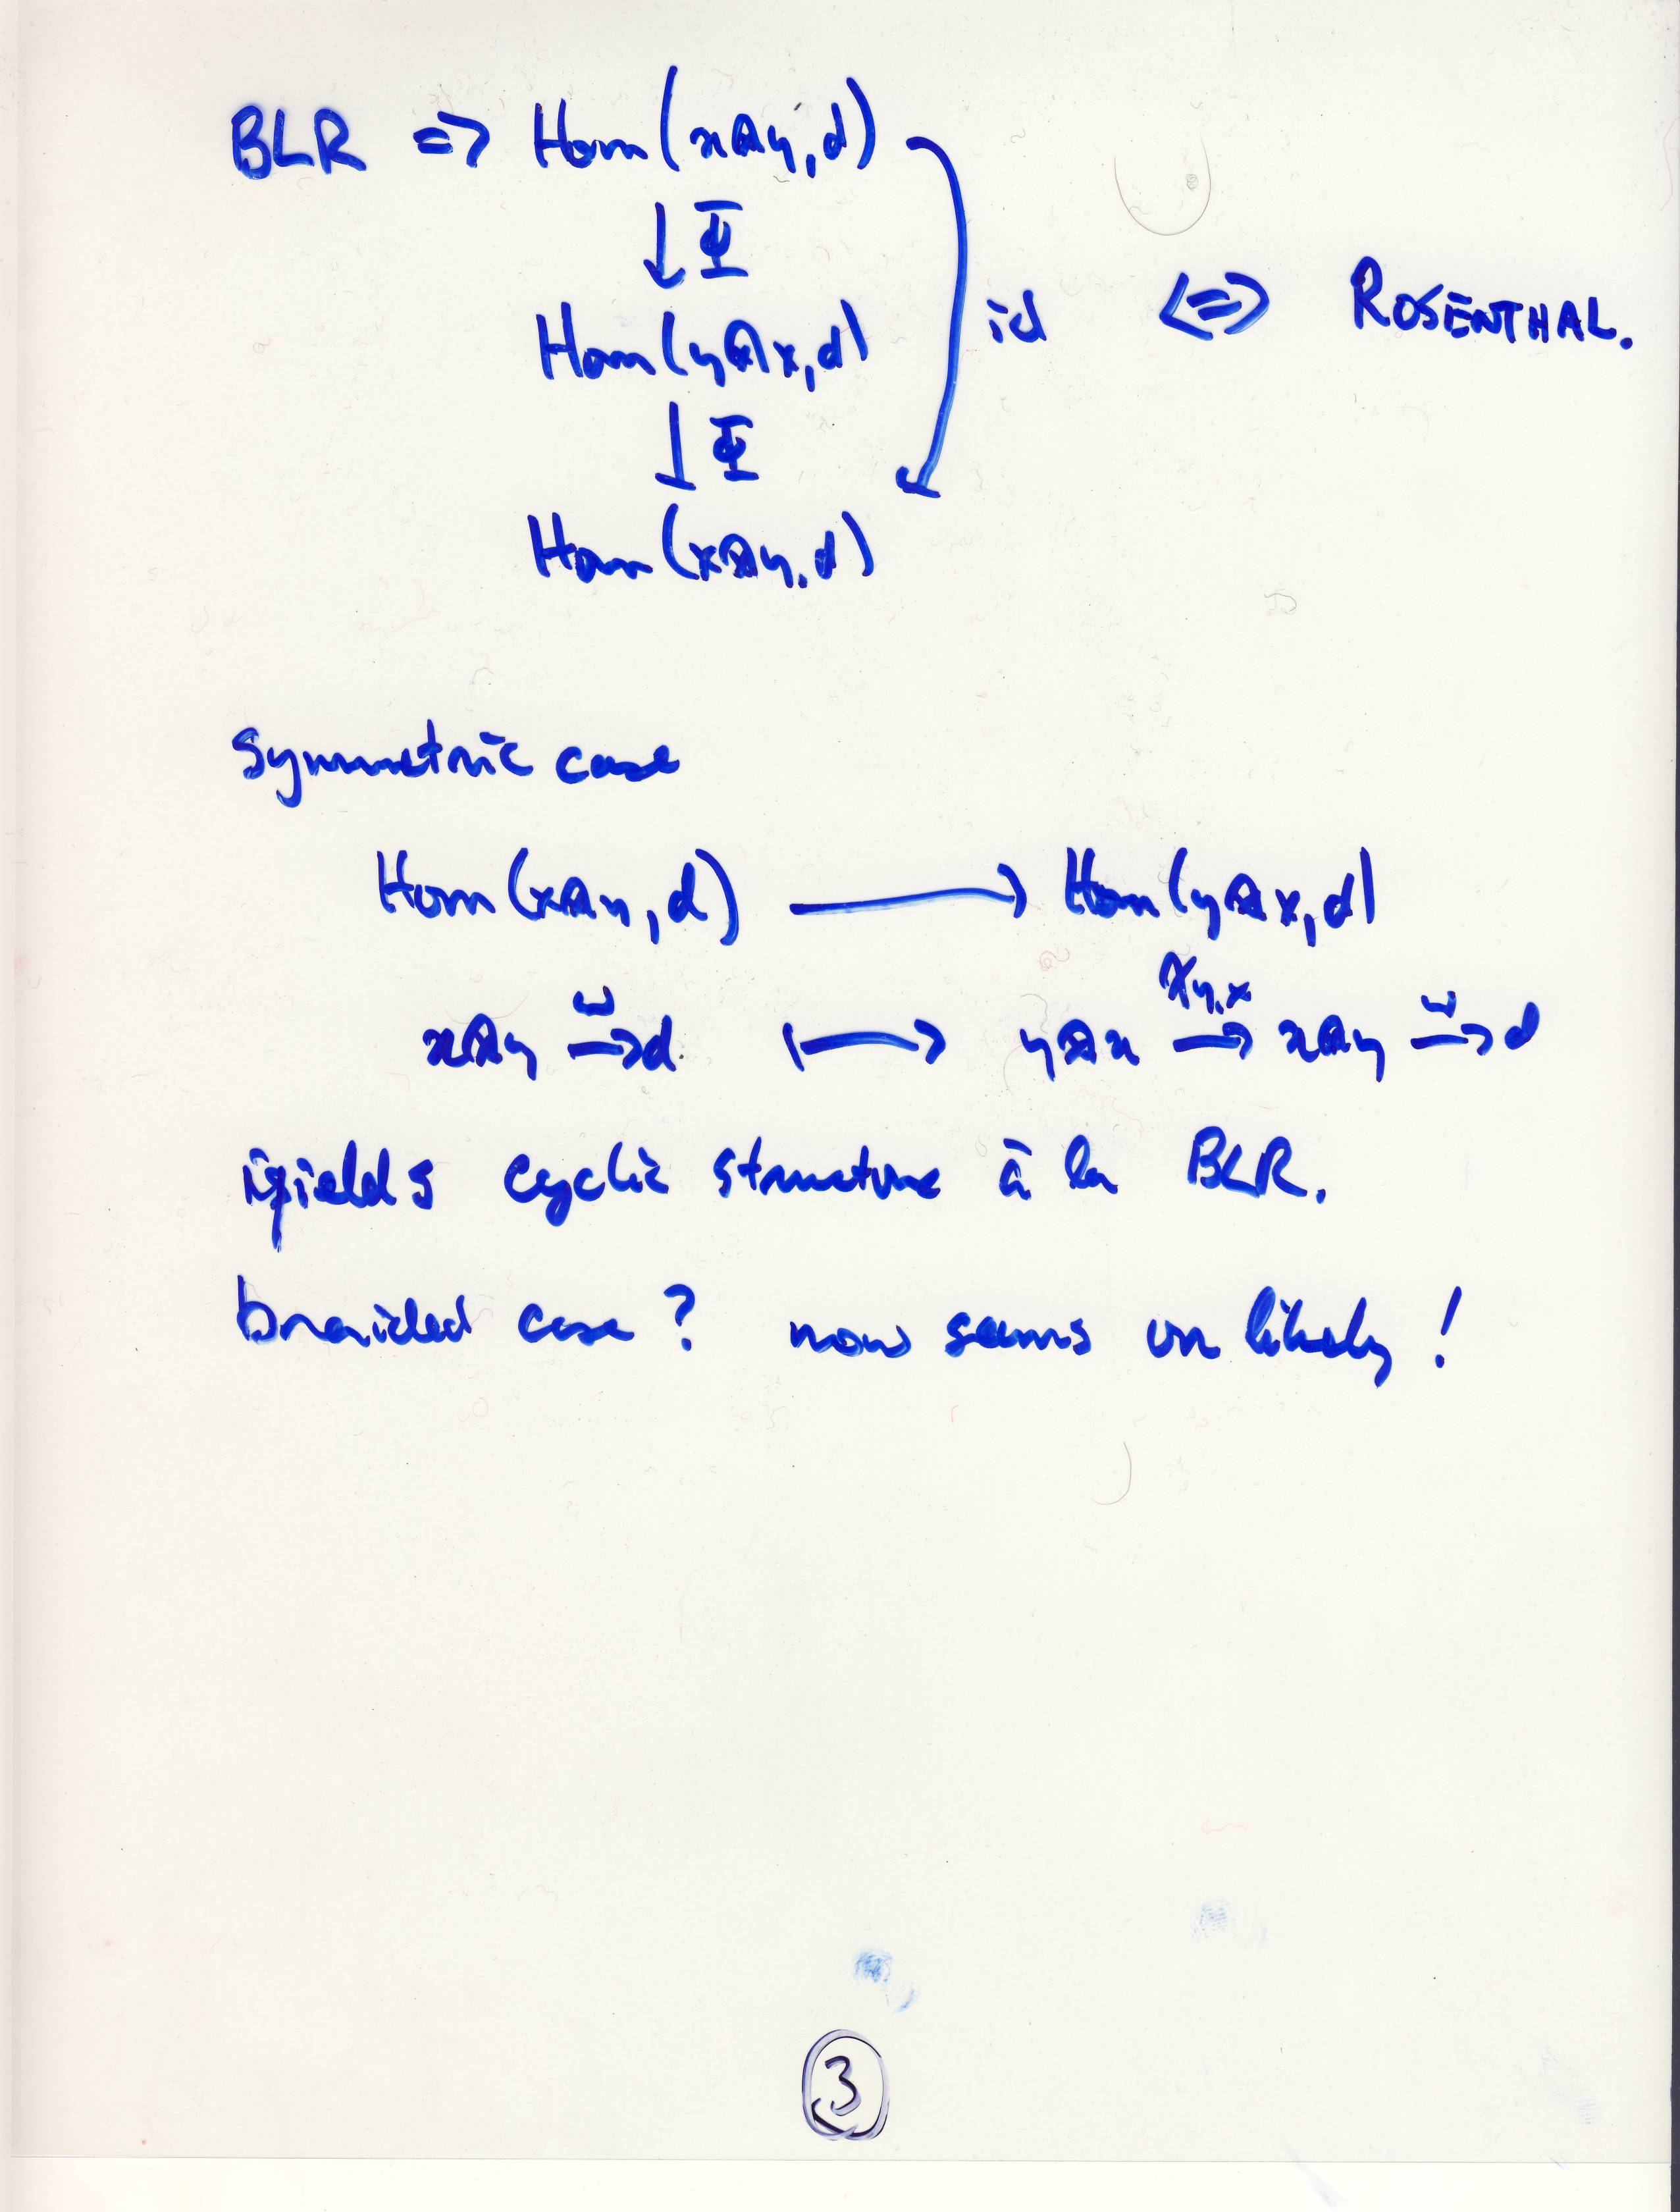 BLR => Hom(x⊗y, d)
↓ Φ
Hom(y⊗x, d) id <=> ROSENTHAL.
↓ Φ
Hom(x⊗y, d)
Symmetric case
Hom(x⊗y, d) ⟶ Hom(y⊗x, d)
x⊗y –ω→ d ⟼ y⊗x –χy,x→ x⊗y –ω→ d
yields cyclic structure à la BLR.
braided case? now seems unlikely!
3